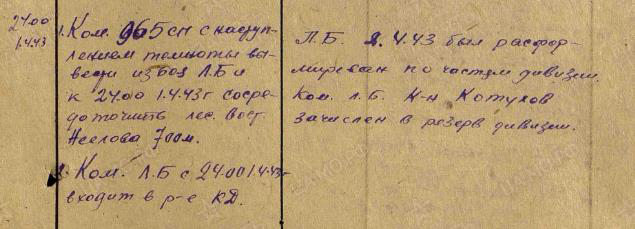 24.00
1.4.43
1. Ком. 965 сп с наступ-
лением темноты вы-
вести из боя Л.Б и
к 24.00 1.4.43 г сосре-
доточить лес. вост.
700 м.
2. Ком. Л.Б с 24.00 1.4.43 г
входит в р-е КД.
Л.Б. 2.4.43 был расфор-
мирован по частям дивизии.
Ком. Л.Б. К-н Котухов
зачислен в резерв дивизии.